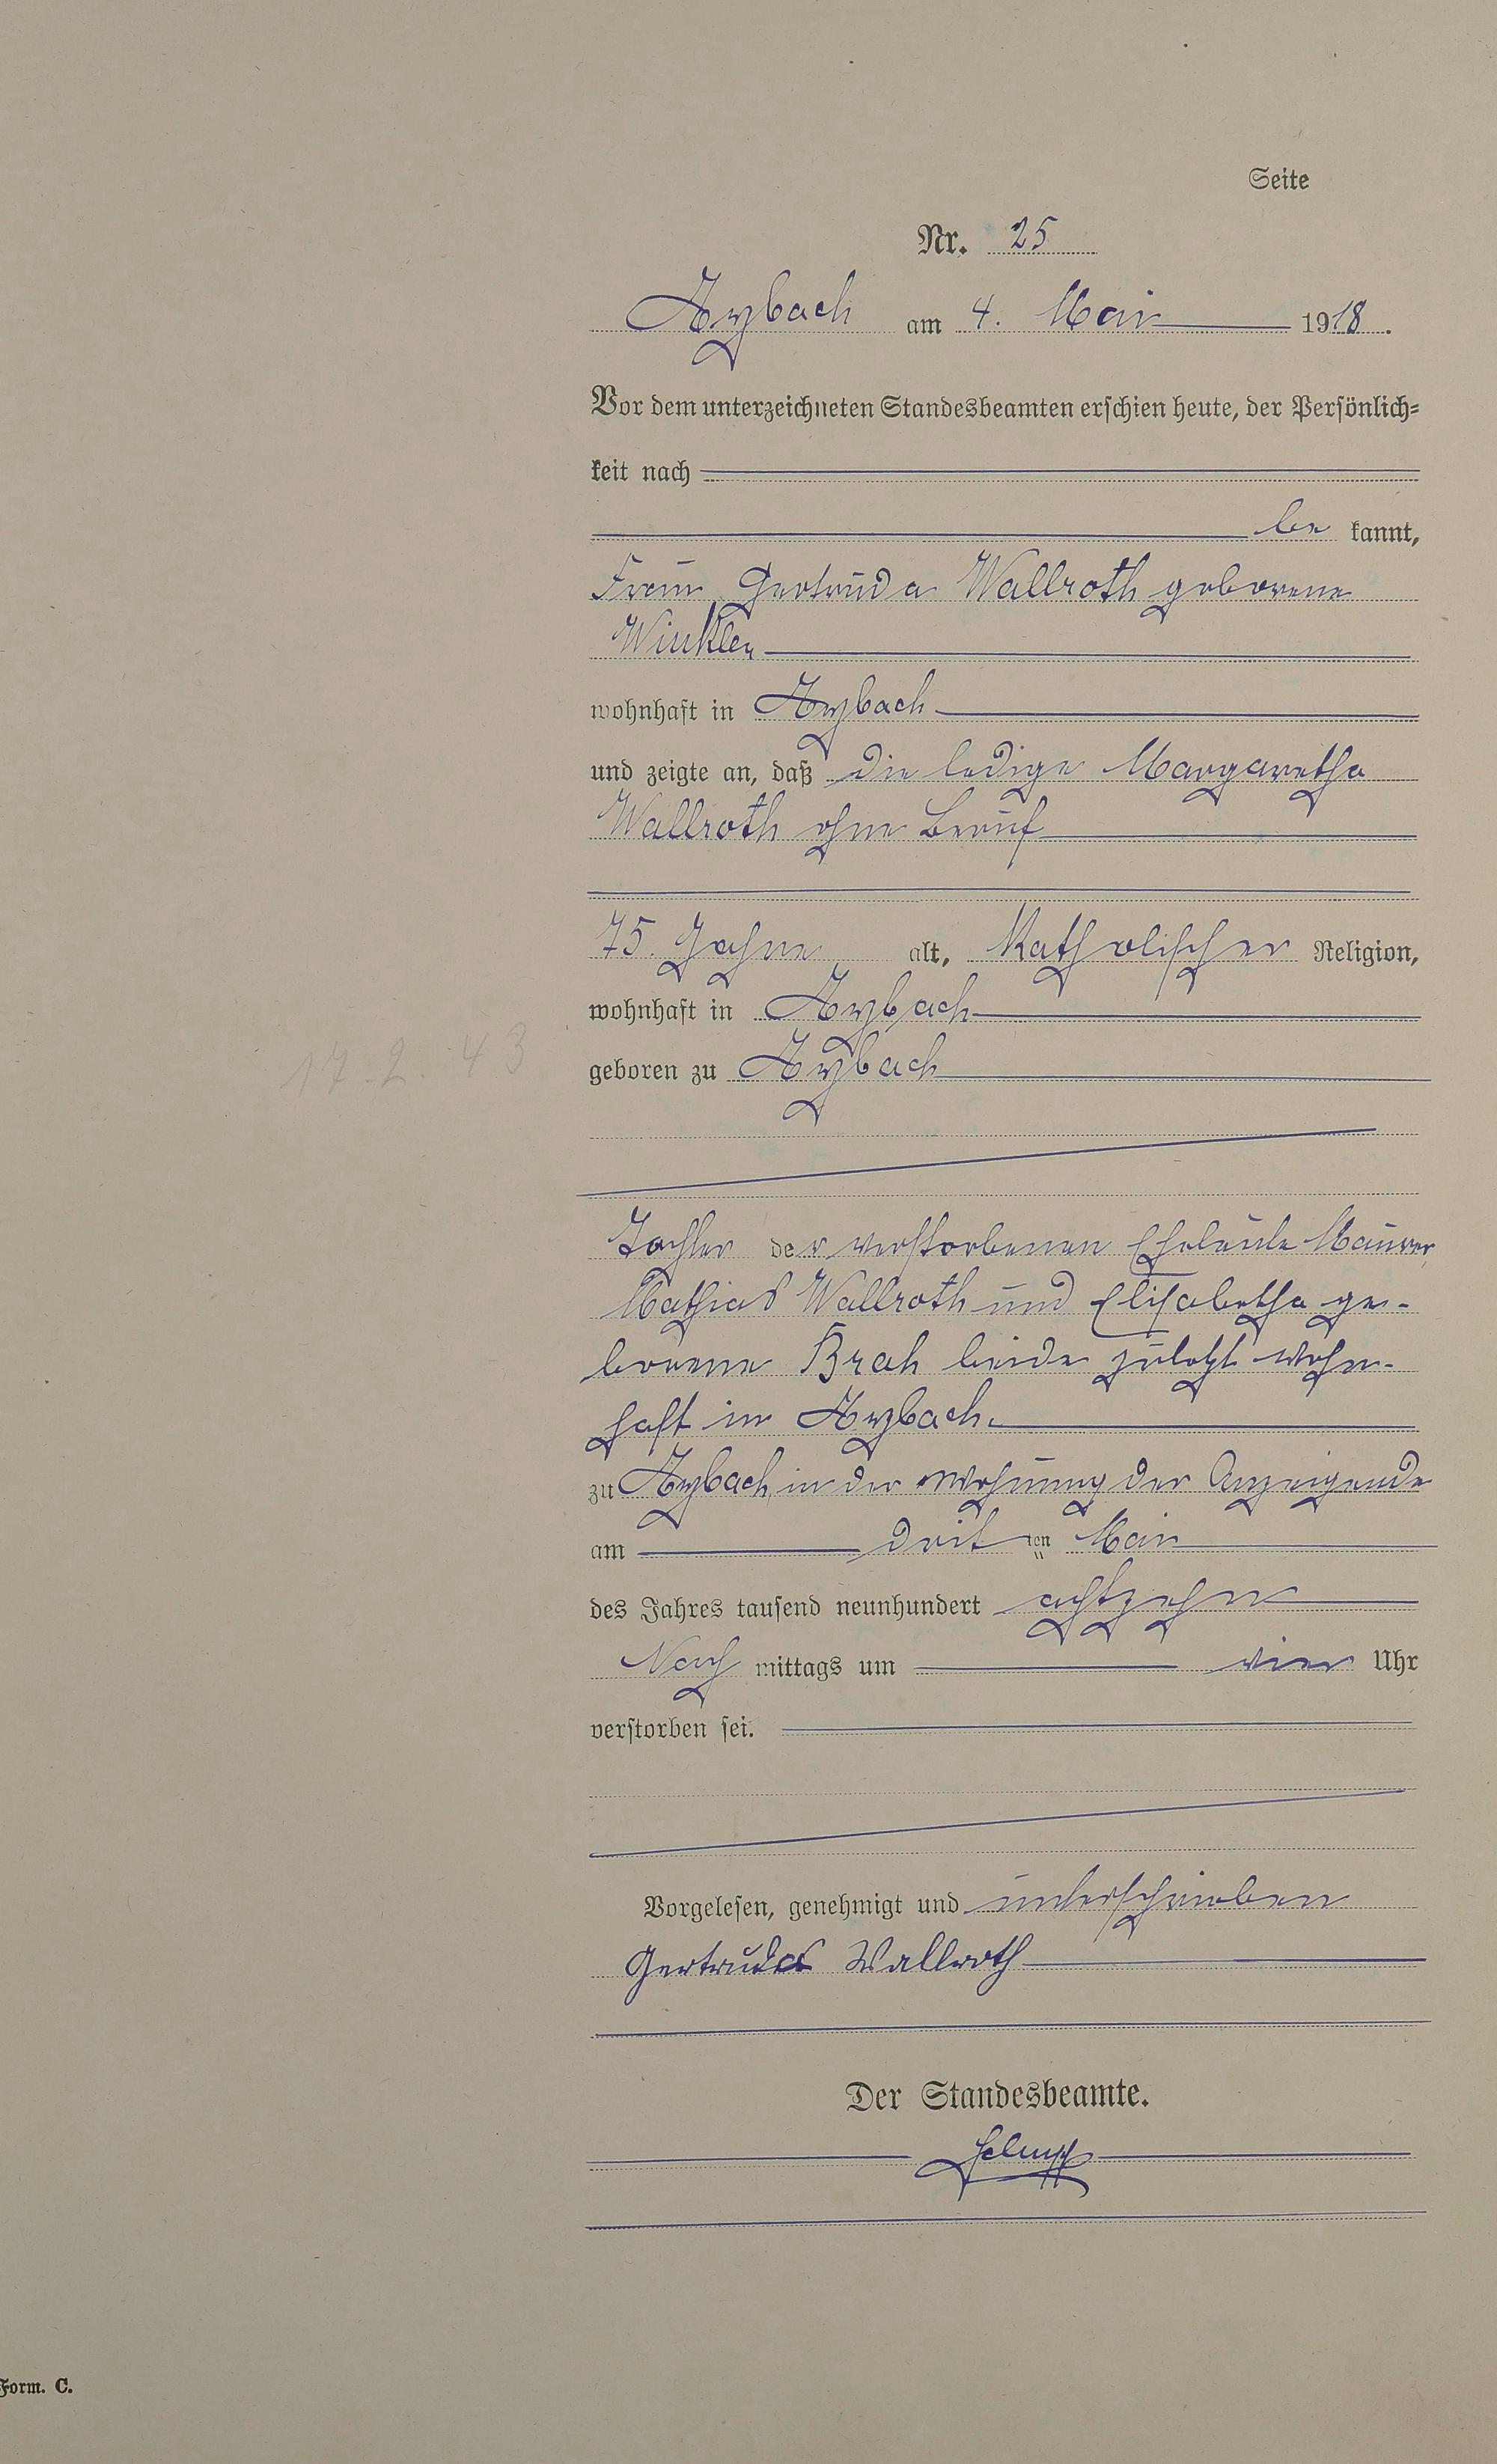 Seite
Nr. 25
Arzbach am 4. Mai 1918.
Vor dem unterzeichneten Standesbeamten erschien heute, der Persönlich=
keit nach
be kannt,
Frau Gertruda Wallroth geborene
Winkler
wohnhaft in Arzbach
und zeigte an, daß die ledige Margaretha
Wallroth ohne Beruf
75. Jahre alt, Katholischer Religion,
wohnhaft in Arzbach
geboren zu Arzbach
17. 2. 43
Tochter der verstorbenen Eheleute Maurer
Mathias Wallroth und Elisabetha ge-
borene Brah beide zuletzt wohn-
haft in Arzbach.
zu Arzbach in der Wohnung der Anzeigende
am drit ten Mai
des Jahres tausend neunhundert achtzehn
Nach mittags um vier Uhr
verstorben sei.
Vorgelesen, genehmigt und unterschrieben
Gertruda Wallroth
Der Standesbeamte.
Form. C.